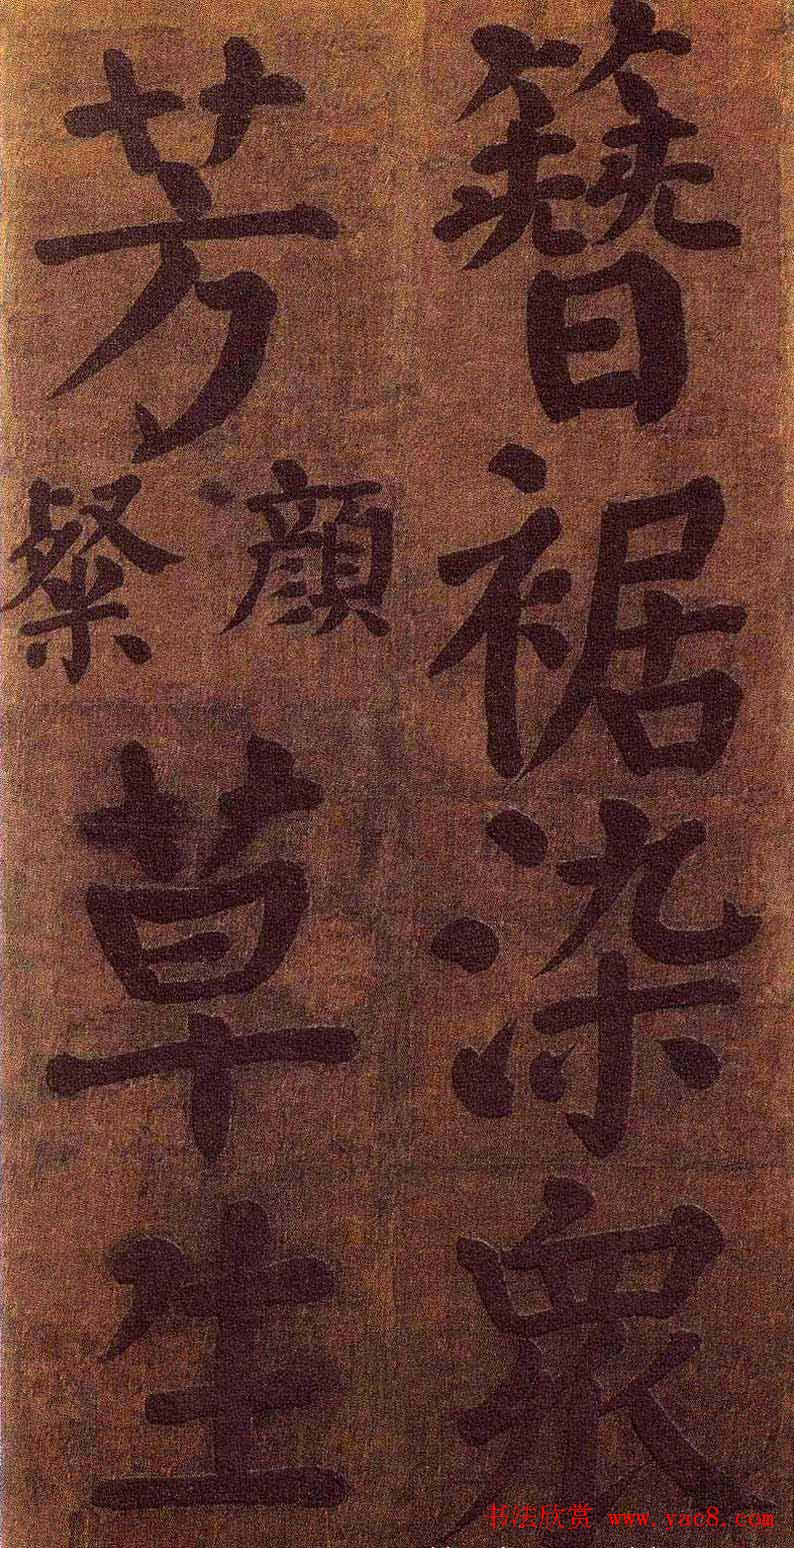 簪裾染衆
芳顏粲草生
书法欣赏 www.yac8.com